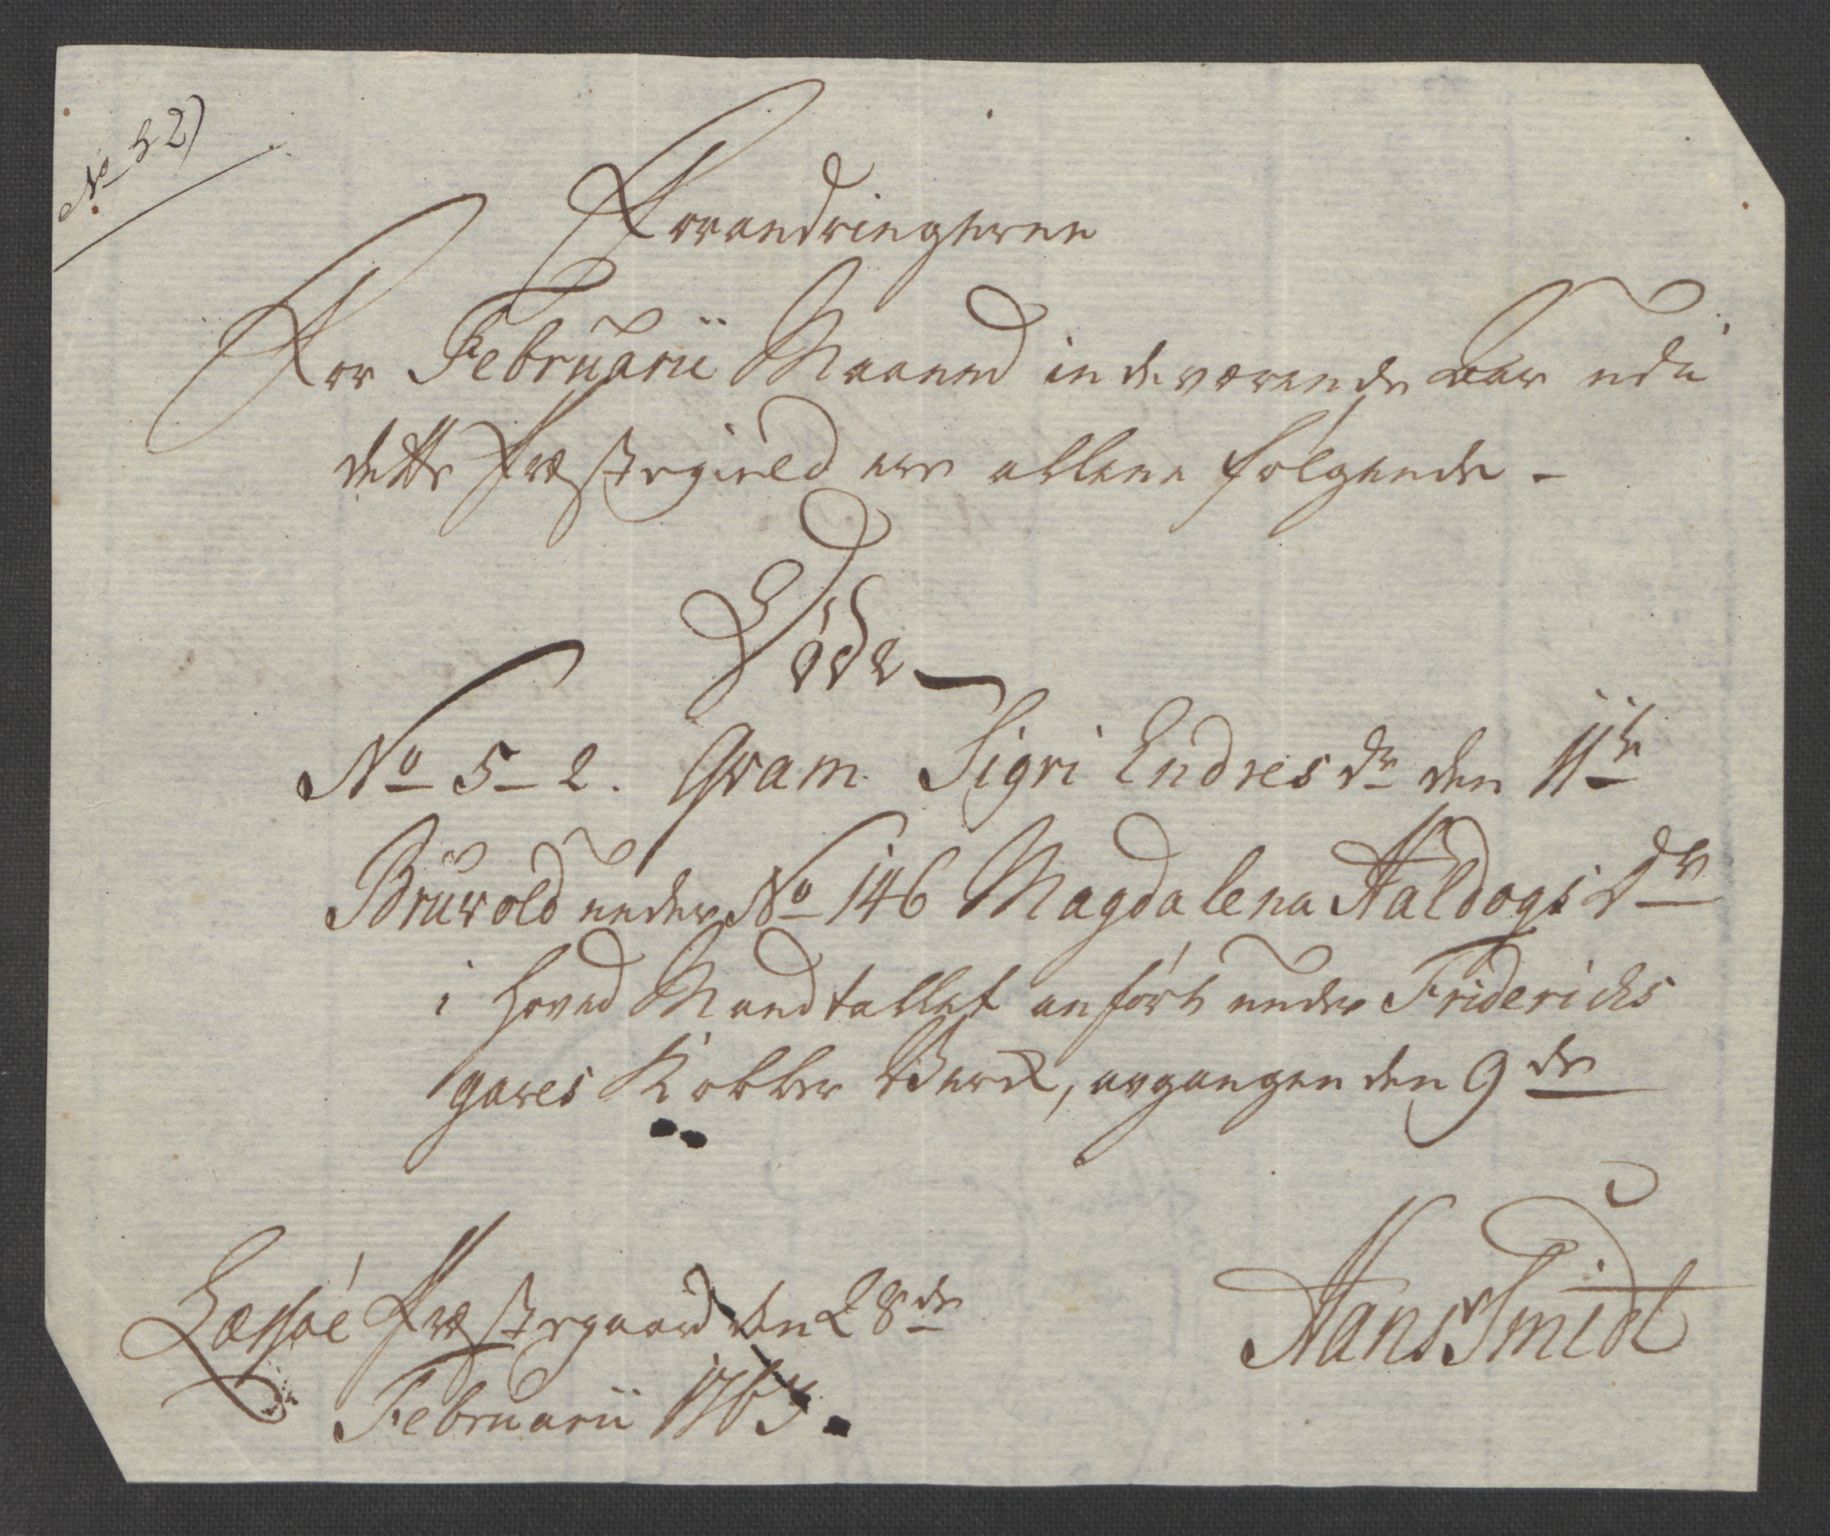 No 52)
Forandringerne
For Februarii Maaned indeværende Aar udi
dette Præstegield ere allene følgende -
Døde
No 5 - 2. Qvam Sigri Endres dr den 11te
Bruvold under No 146 Magdalena Haldogs Dr
i Hoved Mandtallet anført under Friderichs
gaves Kobber Verck, avgangen den 9de
Læssøe Præstegaard den 28de
Februarii 1763.
Hans Smidt